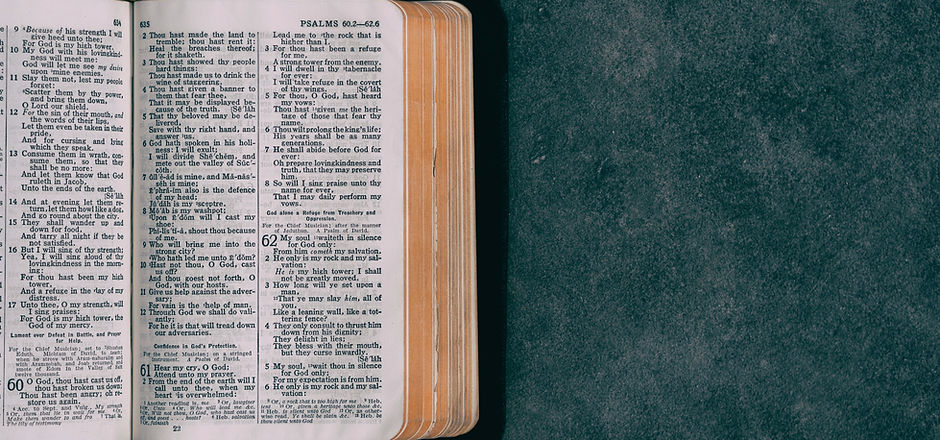 634
9 Because of his strength I will
give heed unto thee;
For God is my high tower.
10 My God with his lovingkind-
ness will meet me:
God will let me see my desire
upon mine enemies.
11 Slay them not, lest my people
forget:
Scatter them by thy power,
and bring them down,
O Lord our shield.
12 For the sin of their mouth, and
the words of their lips,
Let them even be taken in their
pride,
And for cursing and lying
which they speak.
13 Consume them in wrath, con-
sume them, so that they
shall be no more:
And let them know that God
ruleth in Jacob,
Unto the ends of the earth.
[Sē´lăh
14 And at evening let them re-
turn, let them howl like a dog,
And go round about the city.
15 They shall wander up and
down for food,
And tarry all night if they be
not satisfied.
16 But I will sing of thy strength;
Yea, I will sing aloud of thy
lovingkindness in the morn-
ing:
For thou hast been my high
tower,
And a refuge in the day of my
distress.
17 Unto thee, O my strength, will
I sing praises:
For God is my high tower, the
God of my mercy.
Lament over Defeat in Battle, and Prayer
for Help.
For the Chief Musician; set to Shushan
Eduth. Michtam of David, to teach;
when he strove with Aram-naharaim and
with Aram-zobah, and Joab returned, and
smote of Edom in the Valley of Salt
twelve thousand.
60 O God, thou hast cast us off,
thou hast broken us down;
Thou hast been angry; oh re-
store us again.
635
PSALMS 60.2—62.6
2 Thou hast made the land to
tremble; thou hast rent it:
Heal the breaches thereof;
for it shaketh.
3 Thou hast showed thy people
hard things:
Thou hast made us to drink the
wine of staggering.
4 Thou hast given a banner to
them that fear thee,
That it may be displayed be-
cause of the truth. [Sē´lăh
5 That thy beloved may be de-
livered,
Save with thy right hand, and
answer us.
6 God hath spoken in his holi-
ness: I will exult;
I will divide Shē´chĕm, and
mete out the valley of Sŭc´-
cŏth.
7 Gĭl´ê-ăd is mine, and Má-năs´-
sĕh is mine;
Ē´phră-ĭm also is the defence
of my head;
Jū´dăh is my sceptre.
8 Mō´ăb is my washpot;
Upon Ē´dŏm will I cast my
shoe:
Phĭ-lĭs´tĭ-á, shout thou because
of me.
9 Who will bring me into the
strong city?
Who hath led me unto Ē´dŏm?
10 Hast not thou, O God, cast
us off?
And thou goest not forth, O
God, with our hosts.
11 Give us help against the adver-
sary;
For vain is the help of man.
12 Through God we shall do vali-
antly;
For he it is that will tread down
our adversaries.
Confidence in God's Protection.
For the Chief Musician; on a stringed
instrument. A Psalm of David.
61 Hear my cry, O God;
Attend unto my prayer.
2 From the end of the earth will I
call unto thee, when my
heart is overwhelmed:
22
Lead me to the rock that is
higher than I.
3 For thou hast been a refuge
for me,
A strong tower from the enemy.
4 I will dwell in thy tabernacle
for ever:
I will take refuge in the covert
of thy wings. [Sē´lăh
5 For thou, O God, hast heard
my vows:
Thou hast given me the herit-
age of those that fear thy
name.
6 Thou wilt prolong the king's life;
His years shall be as many
generations.
7 He shall abide before God for
ever:
Oh prepare lovingkindness and
truth, that they may preserve
him.
8 So will I sing praise unto thy
name for ever,
That I may daily perform my
vows.
God alone a Refuge from Treachery and
Oppression.
For the Chief Musician; after the manner
of Jeduthun. A Psalm of David.
62 My soul waiteth in silence
for God only:
From him cometh my salvation.
2 He only is my rock and my sal-
vation:
He is my high tower; I shall
not be greatly moved.
3 How long will ye set upon a
man,
That ye may slay him, all of
you,
Like a leaning wall, like a tot-
tering fence?
4 They only consult to thrust him
down from his dignity;
They delight in lies;
They bless with their mouth,
but they curse inwardly.
[Sē´lăh
5 My soul, wait thou in silence
for God only;
For my expectation is from him.
6 He only is my rock and my sal-
vation: